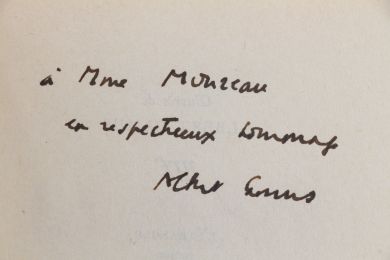 à Mme Mouzeau
en respectueux hommage
Albert Camus